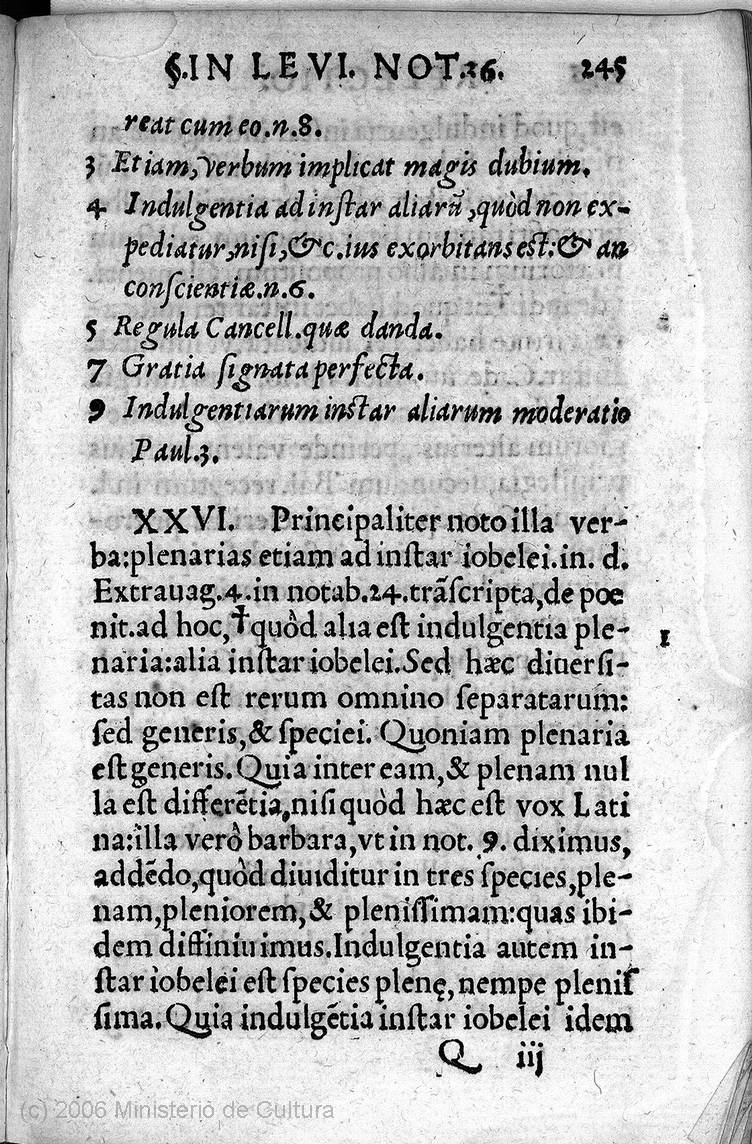 §.IN LEVI. NOT.26. 245
reat cum eo.n.8.
3 Etiam, verbum implicat magis dubium.
4 Indulgentia ad instar aliarũ, quòd non ex-
pediatur, nisi, &c. ius exorbitans est: & an
conscientiæ.n.6.
5 Regula Cancell. quæ danda.
7 Gratia signata perfecta.
9 Indulgentiarum instar aliarum moderatio
Paul.3.
XXVI. Principaliter noto illa ver-
ba: plenarias etiam ad instar iobelei. in. d.
Extrauag.4. in notab.24. trãscripta, de poe
nit. ad hoc, † quòd alia est indulgentia ple- 1
naria: alia instar iobelei. Sed hæc diuersi-
tas non est rerum omnino separatarum:
sed generis, & speciei. Quoniam plenaria
est generis. Quia inter eam, & plenam nul
la est differẽtia, nisi quòd hæc est vox Lati
na: illa verò barbara, vt in not. 9. diximus,
addẽdo, quòd diuiditur in tres species, ple-
nam, pleniorem, & plenissimam: quas ibi-
dem diffiniuimus. Indulgentia autem in-
star iobelei est species plenę, nempe plenis
sima. Quia indulgẽtia instar iobelei idem
Q iij
(c) 2006 Ministerio de Cultura